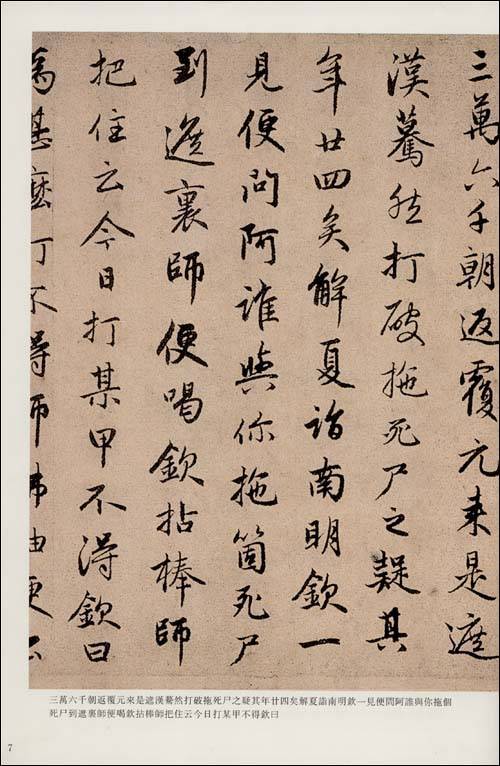 三萬六千朝返覆元来是遮
漢驀然打破拖死尸之疑其
年廿四矣解夏詣南明欽一
見便問阿誰與你拖箇死尸
到遮裏師便喝欽拈棒師
把住云今日打某甲不得欽曰
為甚麼打不得師
三萬六千朝返覆元來是遮漢驀然打破拖死尸之疑其年廿四矣解夏詣南明欽一見便問阿誰與你拖個
死尸到遮裏師便喝欽拈棒師把住云今日打某甲不得欽曰
7